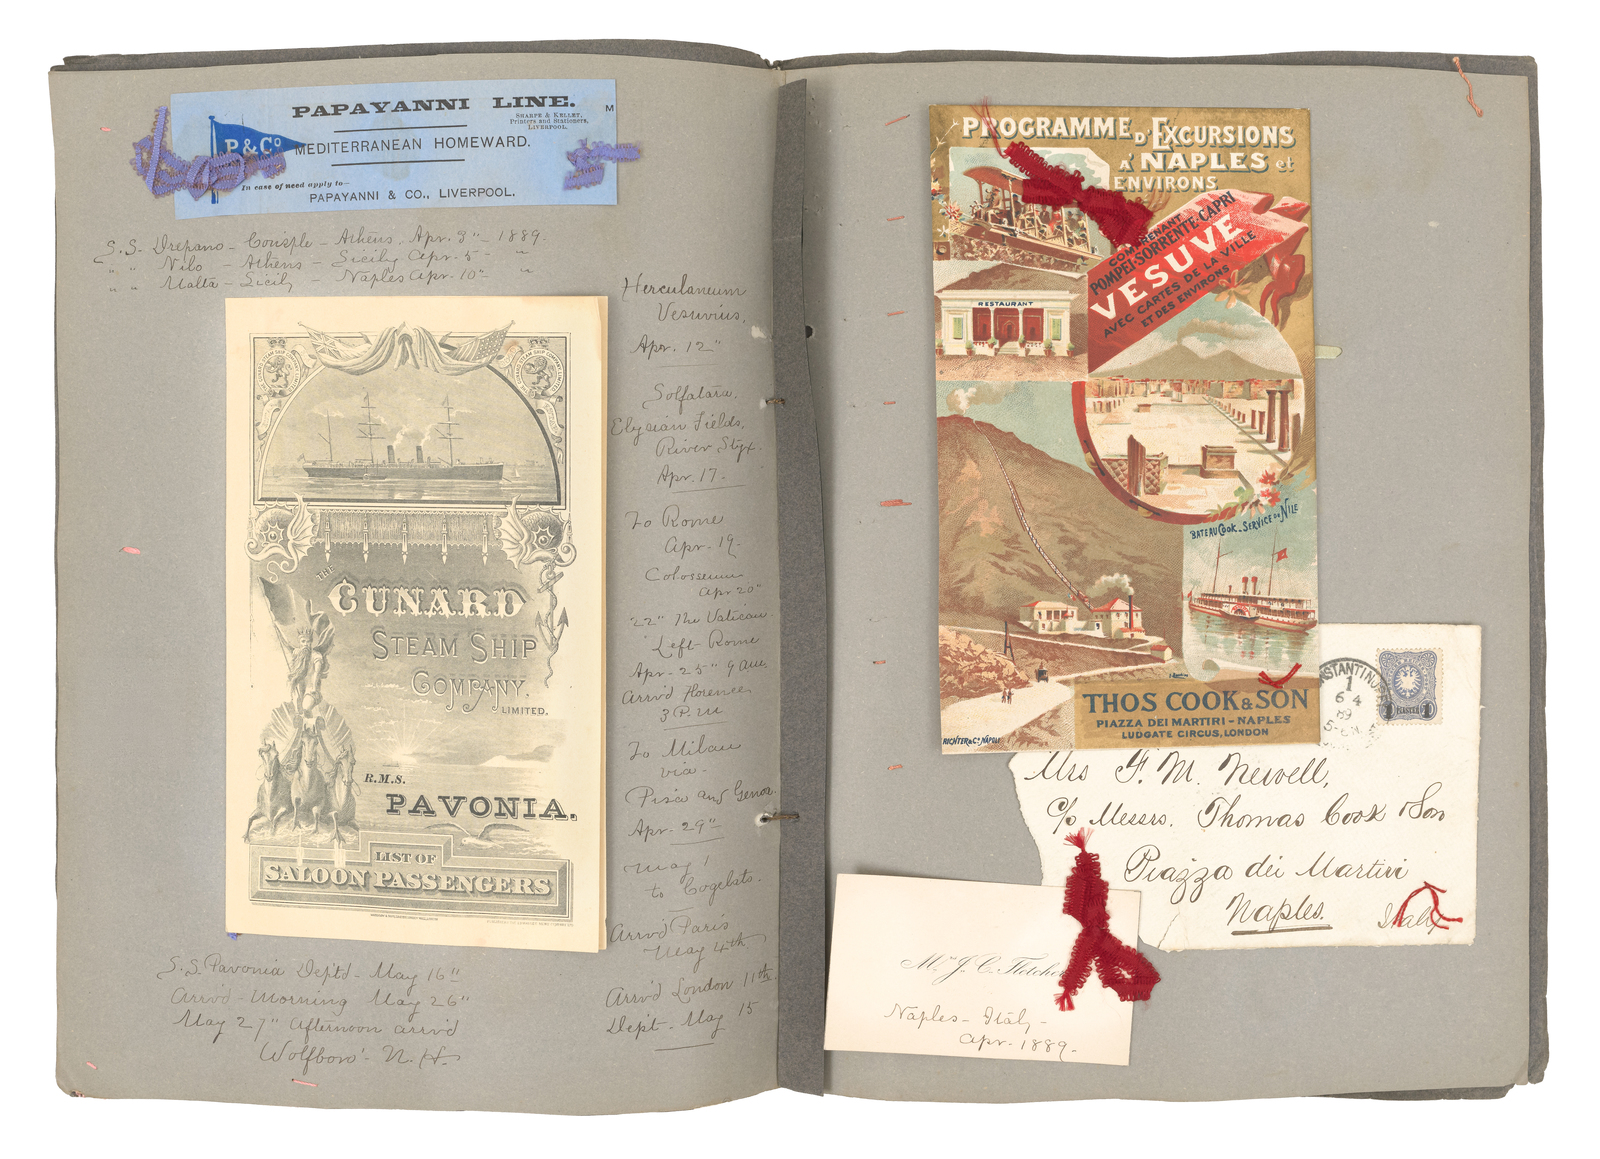 PAPAYANNI LINE.
M
SHARPE & KELLET,
Printers and Stationers,
LIVERPOOL.
P. & Cº
MEDITERRANEAN HOMEWARD.
In case of need apply to—
PAPAYANNI & CO., LIVERPOOL.
S.S. Drepano - Consple - Athens, Apr. 3" - 1889-
" " Nilo - Athens - Sicily Apr. 5 - "
" " Malta - Sicily - Naples Apr. 10" "
THE
CUNARD
STEAM SHIP
COMPANY.
LIMITED.
R.M.S.
PAVONIA.
LIST OF
SALOON PASSENGERS
S.S. Pavonia Dep'td - May 16"
Arriv'd - Morning May 26"
May 27" Afternoon arriv'd
Wolfboro' - N.H.
Herculaneum
Vesuvius,
Apr. 12"
Solfatara.
Elysian Fields,
River Styx.
Apr. 17-
To Rome
Apr. 19-
Colosseum
Apr 20"
22" The Vatican.
Left Rome
Apr. 25" 9 am.
Arriv'd Florence
3 P.M
To Milan
via-
Pisa and Genoa.
Apr. 29"
May 1
to Cogelats.
Arriv'd Paris
May 4th
Arriv'd London 11th
Dept - May 15
PROGRAMME D'EXCURSIONS
A' NAPLES et
ENVIRONS
COMPRENANT
POMPEI-SORRENTE-CAPRI
VESUVE
AVEC CARTES DE LA VILLE
ET DES ENVIRONS
RESTAURANT
BATEAU COOK - SERVICE DU NILE
THOS COOK & SON
PIAZZA DEI MARTIRI - NAPLES
LUDGATE CIRCUS, LONDON
RICHTER & Cº NAPOLI
1
6 4
89
1 PIASTER 1
Mrs F. M. Newell,
c/o Messrs. Thomas Cook & Son
Piazza dei Martiri
Naples.
Italy
Mr. J. C. Fletcher
Naples - Italy -
Apr. 1889-